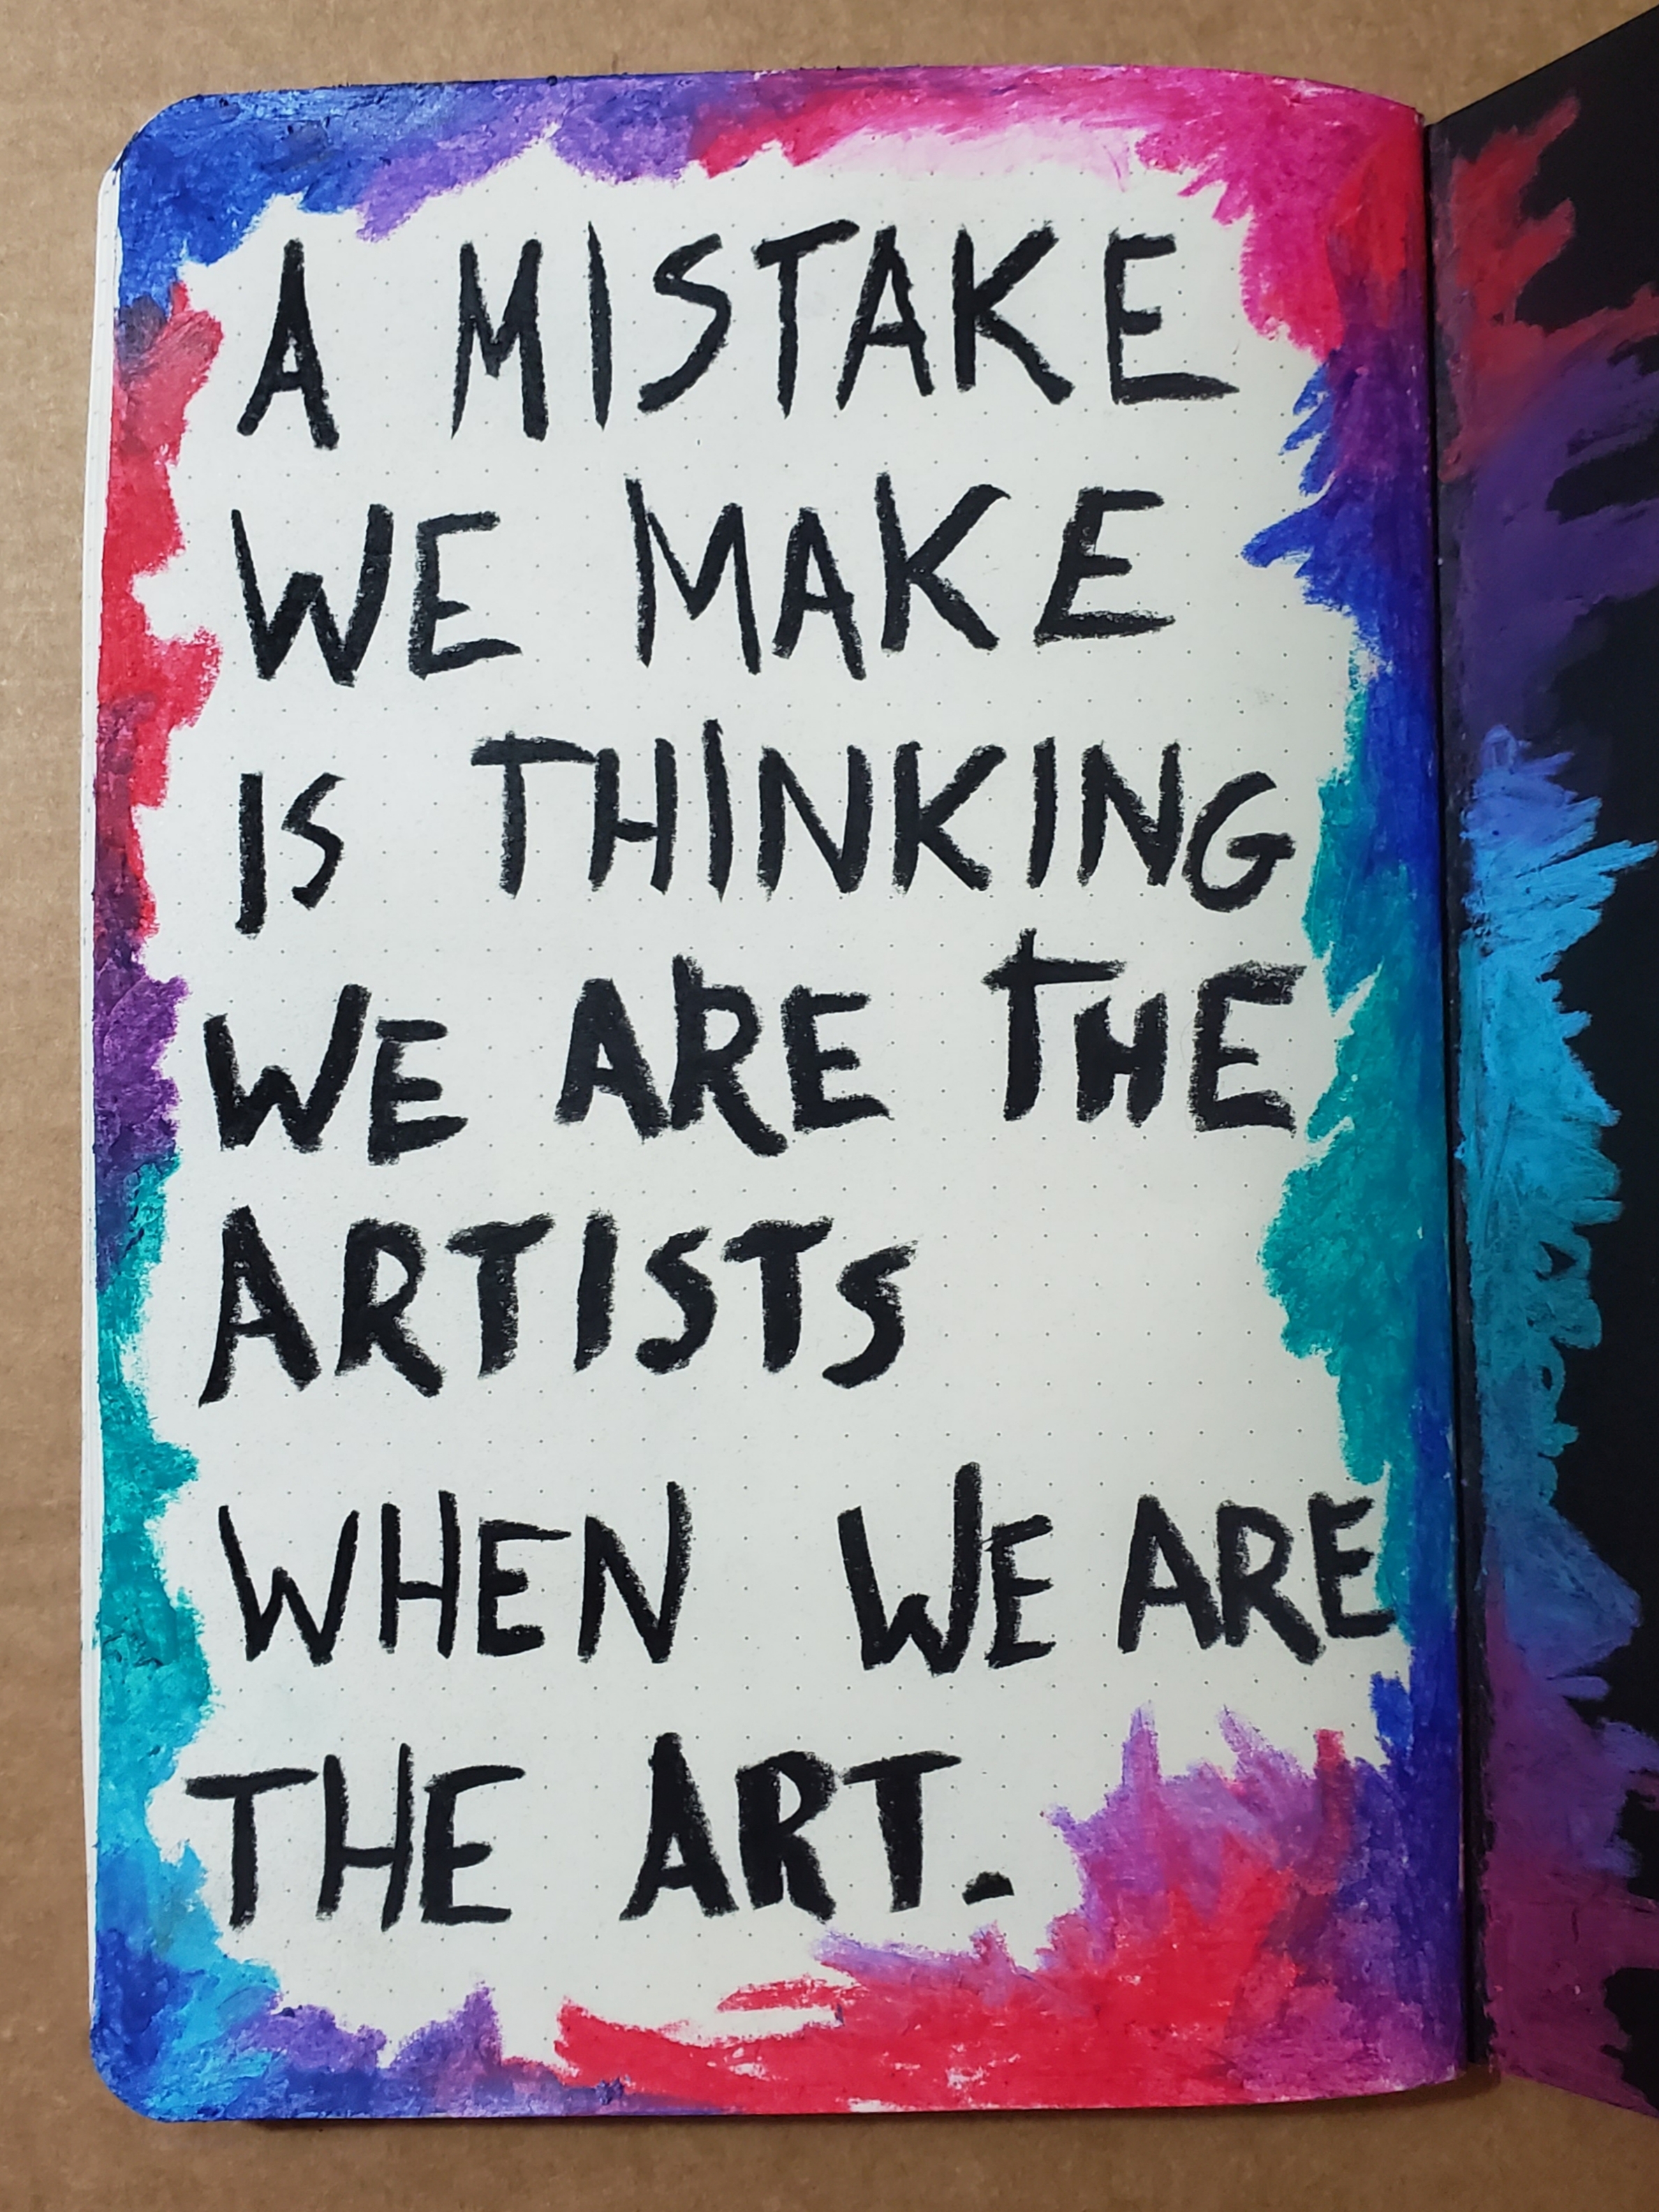 A MISTAKE
WE MAKE
IS THINKING
WE ARE THE
ARTISTS
WHEN WE ARE
THE ART.